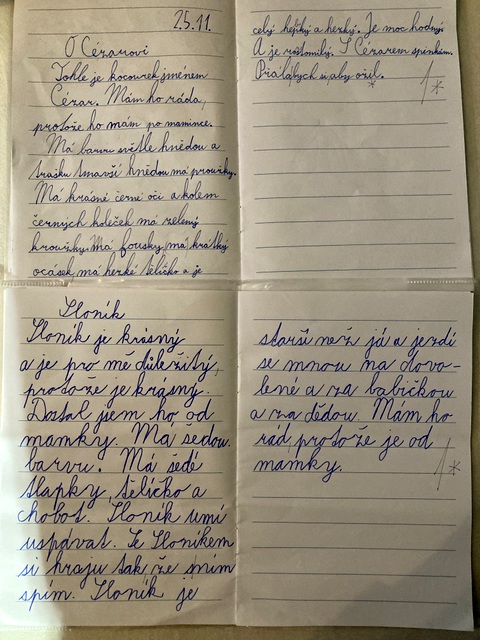 25.11.
O Cézarovi
Tohle je kocourek jménem
Cézar. Mám ho ráda,
protože ho mám po mamince.
Má barvu světle hnědou a
trošku tmavší hnědou má proužky.
Má krásné černé oči a kolem
černých koleček má zelený
kroužky. Má fousky, má krátký
ocásek, má hezké tělíčko a je
celý hejský a hezký. Je moc hodný
A je roztomilý. S Cézarem spinkám.
Přála bych si, aby ožil.
1*
Sloník
Sloník je krásný
a je pro mě důležitý,
protože je krásný.
Dostal jsem ho od
mamky. Má šedou
barvu. Má šedé
tlapky, tělíčko a
chobot. Sloník umí
uspávat. Se Sloníkem
si hraju tak, že s ním
spím. Sloník je
starší než já a jezdí
se mnou na dovo-
lené a za babičkou
a za dědou. Mám ho
rád, protože je od
mamky.
1*